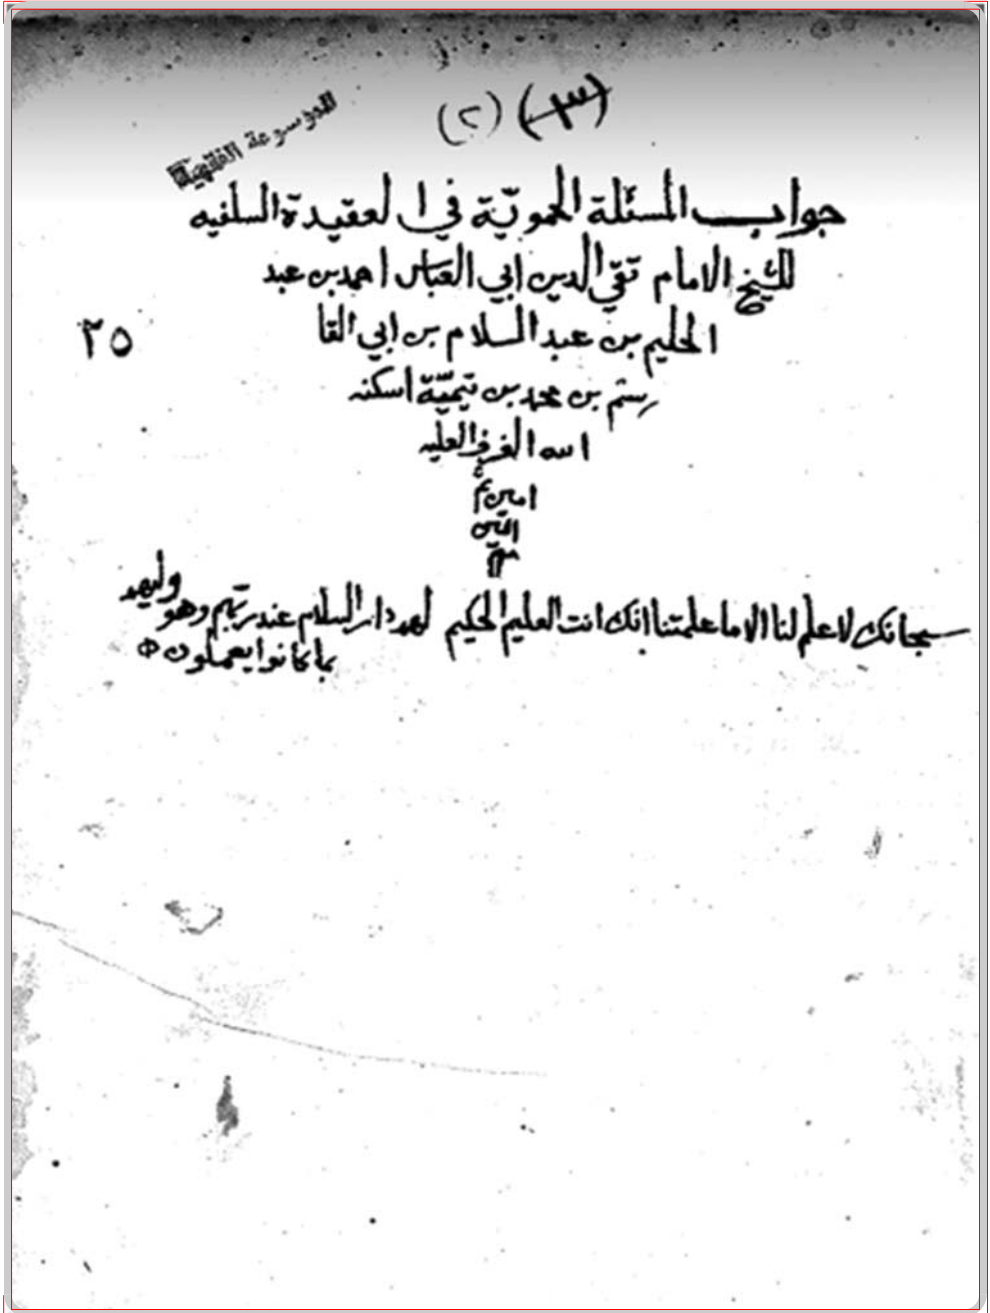 (٢) (٣)
الموسوعة الفقهية
جواب المسئلة الحمويّة في العقيدة السلفيه
للشيخ الامام تقي الدين ابي العباس احمد بن عبد
الحليم بن عبد السلام بن ابي القا
٢٥
سم بن محمد بن تيميّة اسكنه
الله الغرف العليه
امين ثم
امين
م
سبحانك لا علم لنا الا ما علمتنا انك انت العليم الحكيم لهم دار السلام عند ربهم وهو وليهم
بما كانوا يعملون